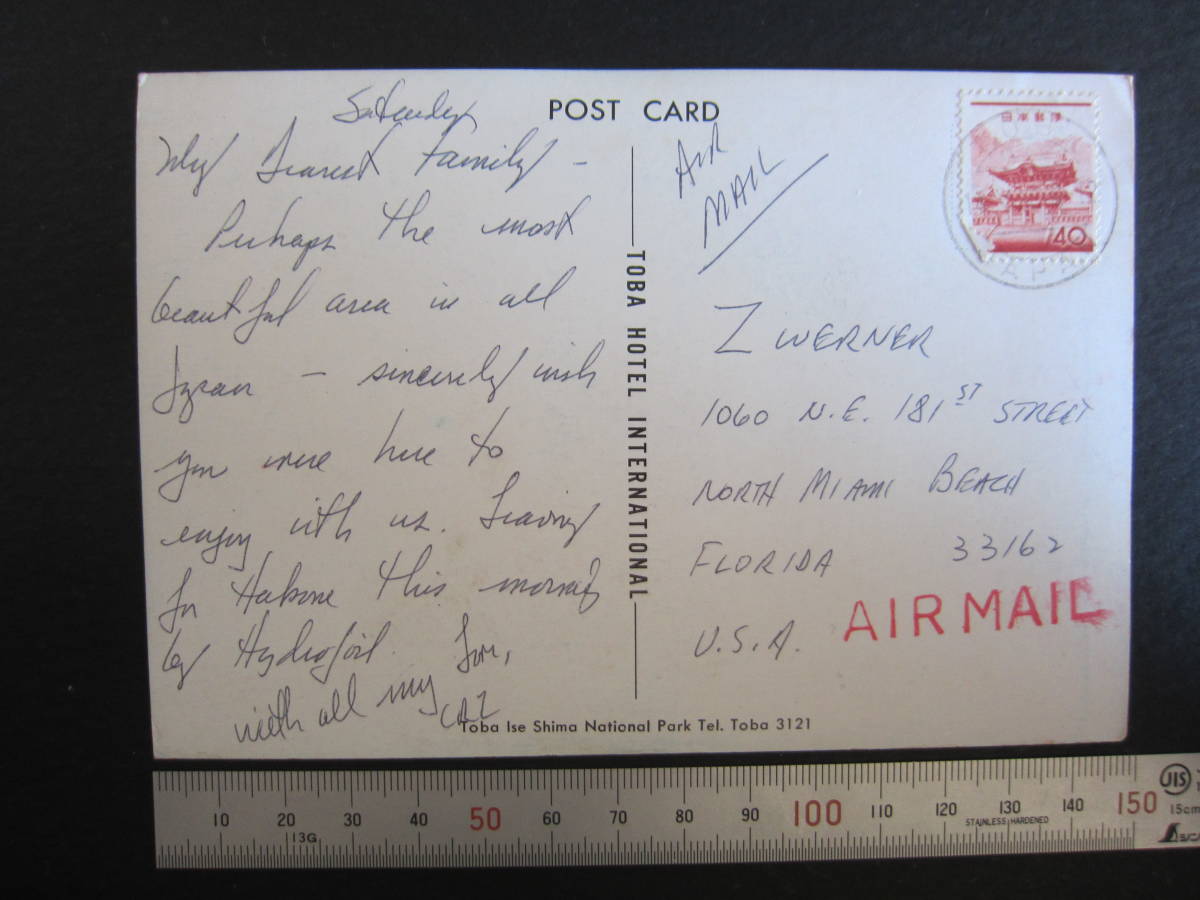 POST CARD
Saturday
My Dearest Family –
Perhaps the most
beautiful area in all
Japan – sincerely wish
you were here to
enjoy with us. Leaving
for Hakone this morning
by Hydrofoil. Love,
with all my
TOBA HOTEL INTERNATIONAL
Toba Ise Shima National Park Tel. Toba 3121
AIR
MAIL
日本郵便
40
JAPAN
Z WERNER
1060 N.E. 181ST STREET
NORTH MIAMI BEACH
FLORIDA 33162
U.S.A.
AIR MAIL
10 20 30 40 50 60 70 80 90 100 110 120 130 140 150
13G
STAINLESS HARDENED
JIS
15cm